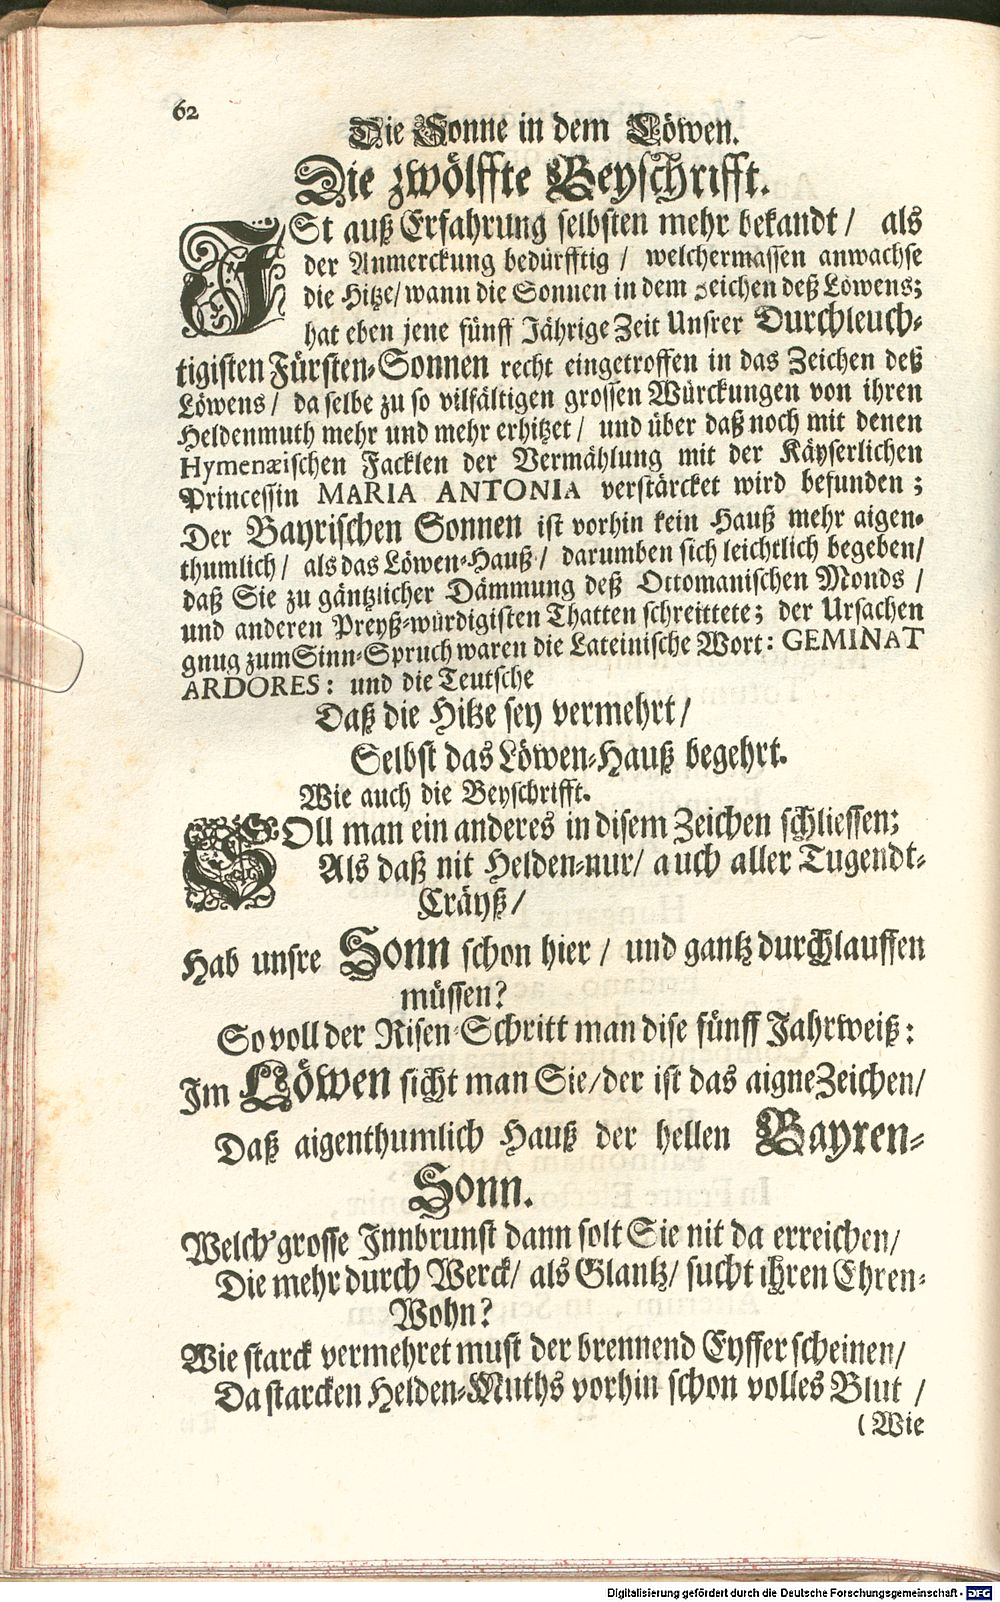 62
Die Sonne in dem Löwen.
Die zwölffte Beyschrifft.
ISt auß Erfahrung selbsten mehr bekandt / als
der Anmerckung bedürfftig / welchermassen anwachse
die Hitze/wann die Sonnen in dem zeichen deß Löwens;
hat eben jene fünff Jährige Zeit Unsrer Durchleuch-
tigisten Fürsten-Sonnen recht eingetroffen in das Zeichen deß
Löwens / da selbe zu so vilfältigen grossen Würckungen von ihren
Heldenmuth mehr und mehr erhitzet / und über daß noch mit denen
Hymenæischen Facklen der Vermählung mit der Käyserlichen
Princessin MARIA ANTONIA verstärcket wird befunden ;
Der Bayrischen Sonnen ist vorhin kein Hauß mehr aigen-
thumlich / als das Löwen-Hauß / darumben sich leichtlich begeben/
daß Sie zu gäntzlicher Dämmung deß Ottomanischen Monds /
und anderen Preyß-würdigisten Thatten schreittete; der Ursachen
gnug zum Sinn-Spruch waren die Lateinische Wort: GEMINAT
ARDORES: und die Teutsche
Daß die Hitze sey vermehrt /
Selbst das Löwen-Hauß begehrt.
Wie auch die Beyschrifft.
SOll man ein anderes in disem Zeichen schliessen;
Als daß nit Helden-nur / auch aller Tugendt-
Cräyß /
Hab unsre Sonn schon hier / und gantz durchlauffen
müssen?
So voll der Risen-Schritt man dise fünff Jahr weiß:
Im Löwen sicht man Sie/der ist das aigne Zeichen/
Daß aigenthumlich Hauß der hellen Bayren-
Sonn.
Welch' grosse Innbrunst dann solt Sie nit da erreichen/
Die mehr durch Werck / als Glantz / sucht ihren Ehren-
Wohn?
Wie starck vermehret must der brennend Eyffer scheinen/
Da starcken Helden-Muths vorhin schon volles Blut /
(Wie
Digitalisierung gefördert durch die Deutsche Forschungsgemeinschaft - DFG